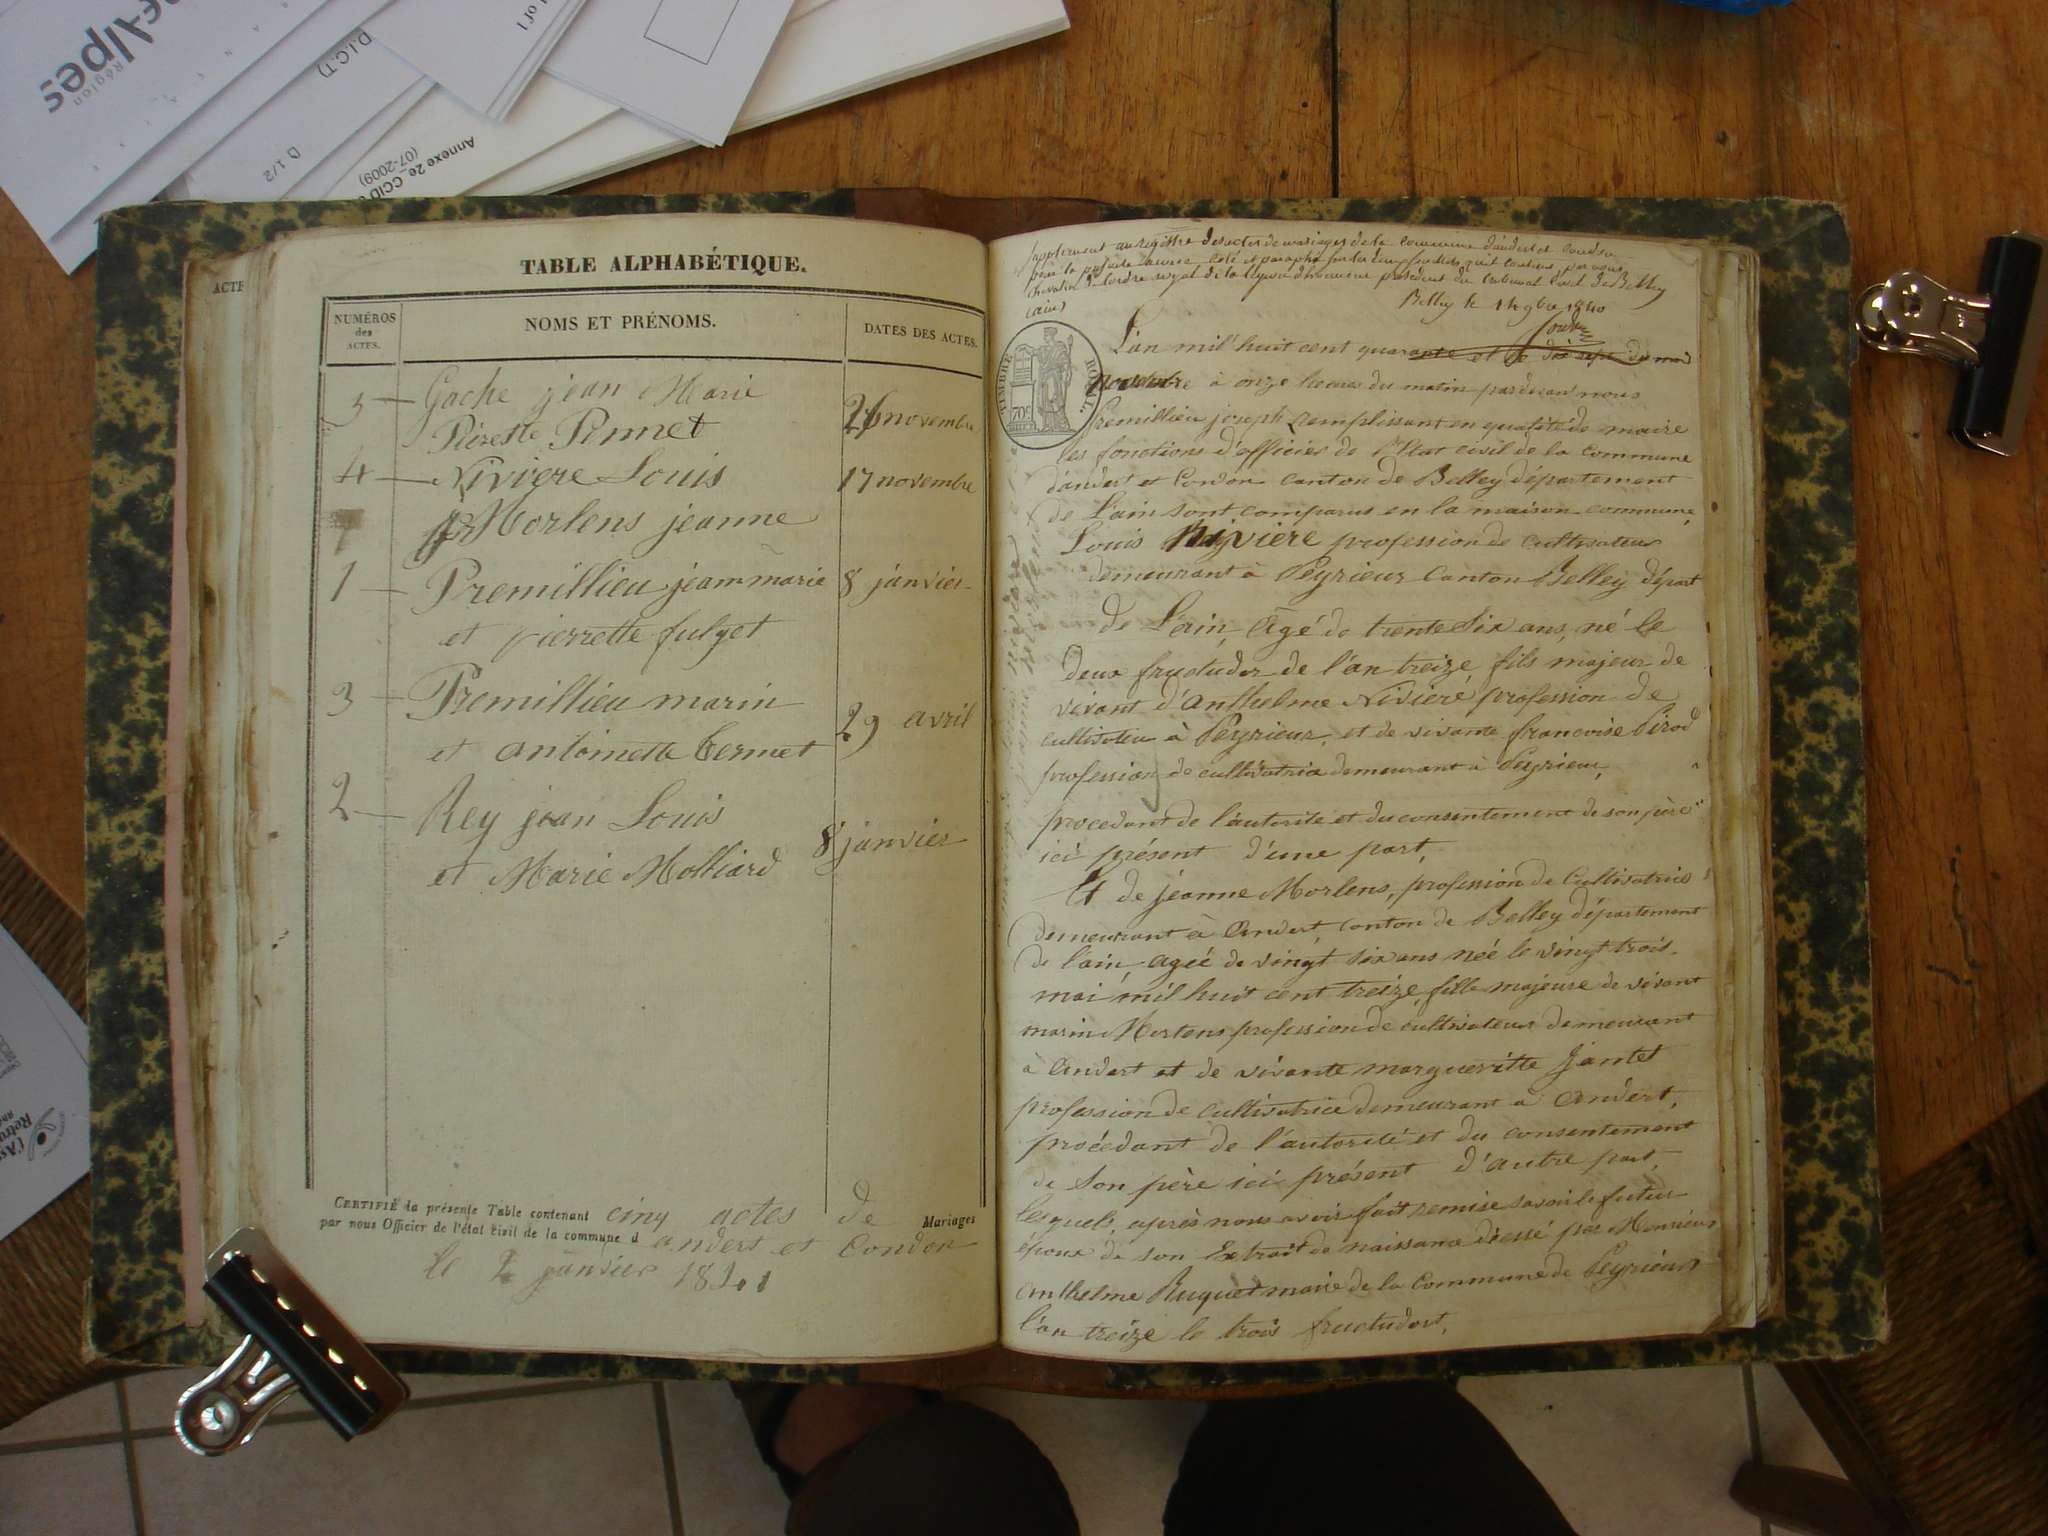 e-Alpes
Région
D.I.C.T)
1 of 1
D 1/2
Annexe 2e_CCID
(07-2009)
ACTE
TABLE ALPHABÉTIQUE.
NUMÉROS des ACTES.
NOMS ET PRÉNOMS.
DATES DES ACTES.
5 Gache jean Marie
Pierette Pennet
26 novembre
4 Niviere Louis
17 novembre
et Morlens jeanne
1 Premillieu jean marie 8 janvier
et pierrette fulget
3 Premillieu marin
et antoinette Cermet
29 avril
2 Rey jean Louis
et Marie Molliard
8 janvier
CERTIFIÉ la présente Table contenant cinq actes de Mariages
par nous Officier de l'état civil de la commune d andert et Condon
le 2 janvier 1841
Supplement au registre des actes de mariages de la commune d'andert et Condon
pour la présente année coté et paraphé sur les deux feuillets qu'il contient par nous
chevalier de l'ordre royal de la légion d'honneur président du tribunal civil de Belley
(ain)
Belley le 14 9bre 1840
TIMBRE ROYAL
70c
L'an mil huit cent quarante et le dix sept du mois
novembre à onze heures du matin pardevant nous
Premillieu joseph remplissant en qualité de maire
les fonctions d'officier de l'Etat civil de la commune
d'andert et Condon canton de Belley département
de L'ain sont comparus en la maison commune,
Louis Nivière profession de cultivateur
demeurant à Peyrieux Canton Belley départ
de L'ain, âgé de trente six ans, né le
deux fructudor de l'an treize, fils majeur de
vivant d'Anthelme Niviere, profession de
cultivateu à Peyrieux, et de vivante francoise Pirod
profession de cultivatrice demeurant à Peyrieux,
procedant de l'autorité et du consentement de son père
ici présent d'une part,
Et de jeanne Morlens, profession de Cultivatrice
demeurant à Andert, canton de Belley département
de l'ain, ageé de vingt six ans née le vingt trois
mai mil huit cent treize, fille majeure de vivant
marin Morlens profession de cultivateur demeurant
à Andert et de vivante margueritte Jantet
profession de cultivatrice demeurant à Andert,
procédant de l'autorité et du consentement
de Son père ici présent d'autre part,
lesquels, après nous avoir fait remise savoir le futur
époux de son Extrait de naissance dréssé par Monsieur
Anthelme Ruquet maire de la Commune de Peyrieux
l'an treize le trois fructudort,